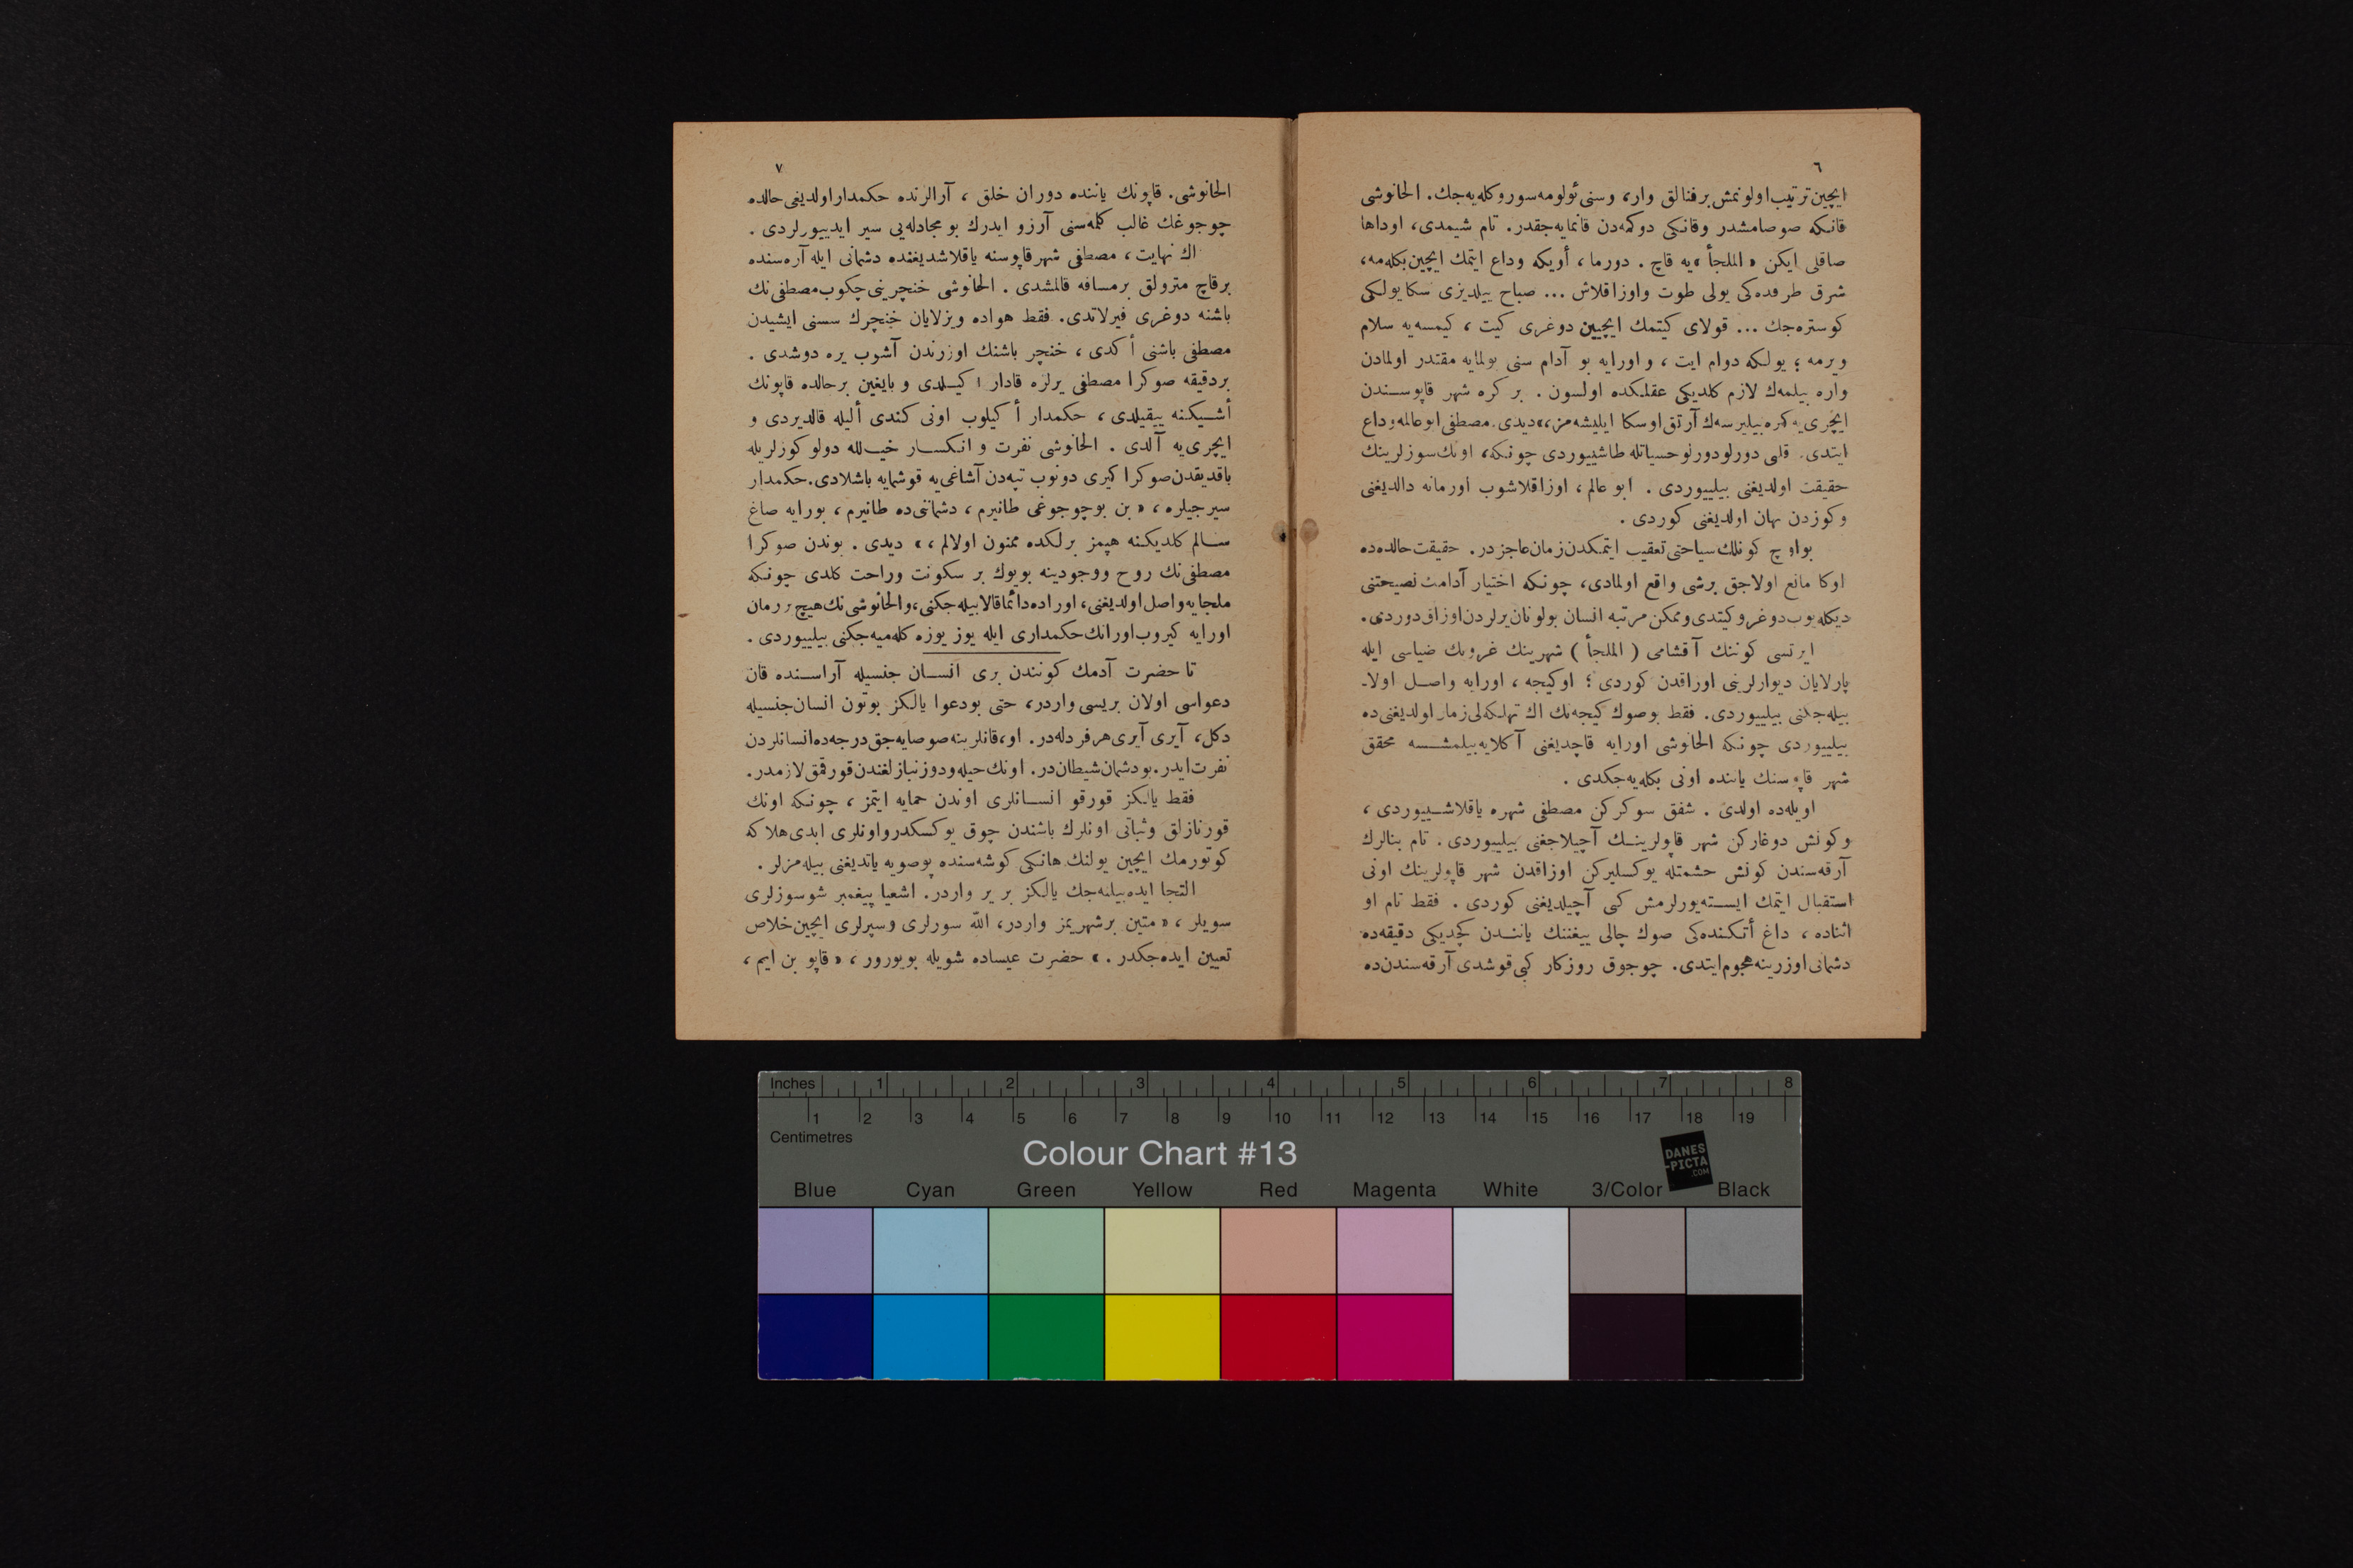 ٦
ایچین ترتیب اولونمش بر فنالق وار، وسنی ئولومه سوروکله یه جك. الحانوشی
قانکه صوصامشدر وقانکی دوکمه دن قانمایه جقدر. تام شیمدی، اوداها
صاقلی ایکن « الملجأ » یه قاچ . دورما ، أویکه وداع ایتمك ایچین بکله مه،
شرق طرفده کی یولی طوت واوزاقلاش ... صباح ییلدیزی سکا یولکی
کوستره جك ... قولای کیتمك ایچیین دوغری کیت ، کیمسه یه سلام
ویرمه ؛ یولکه دوام ایت ، و اورایه بو آدام سنی بولمایه مقتدر اولمادن
واره بیلمه ك لازم کلدیکی عقلکده اولسون . بر کره شهر قاپوسندن
ایچری یه کیره بیلیرسه ك آرتق اوسکا ایلیشه مز،» دیدی. مصطفی ابوعالمه وداع
ایتدی. قلبی دورلو دورلو حسیاتله طاشییوردی چونکه، اونك سوزلرینك
حقیقت اولدیغنی بیلییوردی . ابو عالم ، اوزاقلاشوب اورمانه دالدیغنی
وکوزدن نهان اولدیغنی کوردی .
بو اوچ کونلك سیاحتی تعقیب ایتمکدن زمان عاجزدر. حقیقت حالده ده
اوکا مانع اولاجق برشی واقع اولمادی، چونکه اختیار آدامك نصیحتنی
دیکله یوب دوغرو کیتدی وممکن مرتبه انسان بولونان یرلردن اوزاق دوردی.
ایرتسی کوننك آقشامی ( الملجأ ) شهرینك غروبك ضیاسی ایله
پارلایان دیوارلرینی اوزاقدن کوردی ؛ اوکیجه ، اورایه واصل اولا-
بیله جکنی بیلییوردی. فقط بوصوك کیجه نك اك تهلکه لی زمان اولدیغنی ده
بیلییوردی چونکه الحانوشی اورایه قاچدیغنی آکلایه بیلمشسه محقق
شهر قاپوسنك یاننده اونی بکله یه جکدی .
اویله ده اولدی . شفق سوکرکن مصطفی شهره یاقلاشییوردی ،
وکونش دوغارکن شهر قاپولرینك آچیلاجغنی بیلییوردی . تام بنالرك
آرقه سندن کونش حشمتله یوکسلیرکن اوزاقدن شهر قاپولرینك اونی
استقبال ایتمك ایسته یورلرمش کبی آچیلدیغنی کوردی . فقط تام او
اثناده ، داغ أتکنده کی صوك چالی ییغننك یاننـدن کچدیکی دقیقه ده
دشمانی اوزرینه هجوم ایتدی. چوجوق روزکار کبی قوشدی آرقه سندن ده
٧
الحانوشی. قاپونك یاننده دوران خلق ، آرالرنده حکمدار اولدیغی حالده
چوجوغك غالب کلمه سنی آرزو ایدرك بو مجادله یی سیر ایدییورلردی .
اك نهایت ، مصطفی شهر قاپوسنه یاقلاشدیغنده دشمانی ایله آره سنده
بر قاچ مترولق بر مسافه قالمشدی . الحانوشی خنچرینی چکوب مصطفی نك
باشنه دوغری فیرلاتدی. فقط هواده ویزلایان خنچرك سسنی ایشیدن
مصطفی باشنی أکدی ، خنچر باشنك اوزرندن آشوب یره دوشدی .
بر دقیقه صوکرا مصطفی یرلره قادار اکیلدی و بایغین بر حالده قاپونك
أشیکنه ییقیلدی ، حکمدار أکیلوب اونی کندی ألیله قالدیردی و
ایچری یه آلدی . الحانوشی نفرت و انکسار خیالله دولو کوزلریله
باقدیقدن صوکرا کیری دونوب تپه دن آشاغی یه قوشمایه باشلادی. حکمدار
سیرجیلره ، « بن بو چوجوغی طانیرم ، دشماننی ده طانیرم ، بورایه صاغ
سالم کلدیکنه هپمز برلکده ممنون اولالم ،» دیدی . بوندن صوکرا
مصطفی نك روح ووجودینه بویوك بر سکونت وراحت کلدی چونکه
ملجایه واصل اولدیغنی، اوراده دائما قالابیله جکنی، والحانوشی نك هیچ بر زمان
اورایه کیروب اورانك حکمداری ایله یوز یوزه کله میه جکنی بیلییوردی .
تا حضرت آدمك کونندن بری انسان جنسیله آراسنده قان
دعواسی اولان بریسی واردر، حتی بودعوا یالکز بوتون انسان جنسیله
دکل، آیری آیری هر فردله در. او، قانلرینه صوصایه جق درجه ده انسانلردن
نفرت ایدر. بو دشمان شیطان در. اونك حیله ودوزنبازلغندن قورقمق لازمدر.
فقط یالکز قورقو انسانلری اوندن حمایه ایتمز ، چونکه اونك
قورنازلق وثباتی اونلرك باشندن چوق یوکسکدر واونلری ابدی هلاکه
کوتورمك ایچین یولنك هانکی کوشه سنده پوصویه یاتدیغنی بیله مزلر .
التجا ایده بیلنه جك یالکز بر یر واردر. اشعیا پیغمبر شو سوزلری
سویلر ، « متین بر شهریمز واردر، الله سورلری وسپرلری ایچین خلاص
تعیین ایده جکدر . » حضرت عیساده شویله بویورور ، « قاپو بن ایم ،
Inches 1 2 3 4 5 6 7 8
1 2 3 4 5 6 7 8 9 10 11 12 13 14 15 16 17 18 19
Centimetres
Colour Chart #13
DANES
-PICTA
.COM
Blue Cyan Green Yellow Red Magenta White 3/Color Black